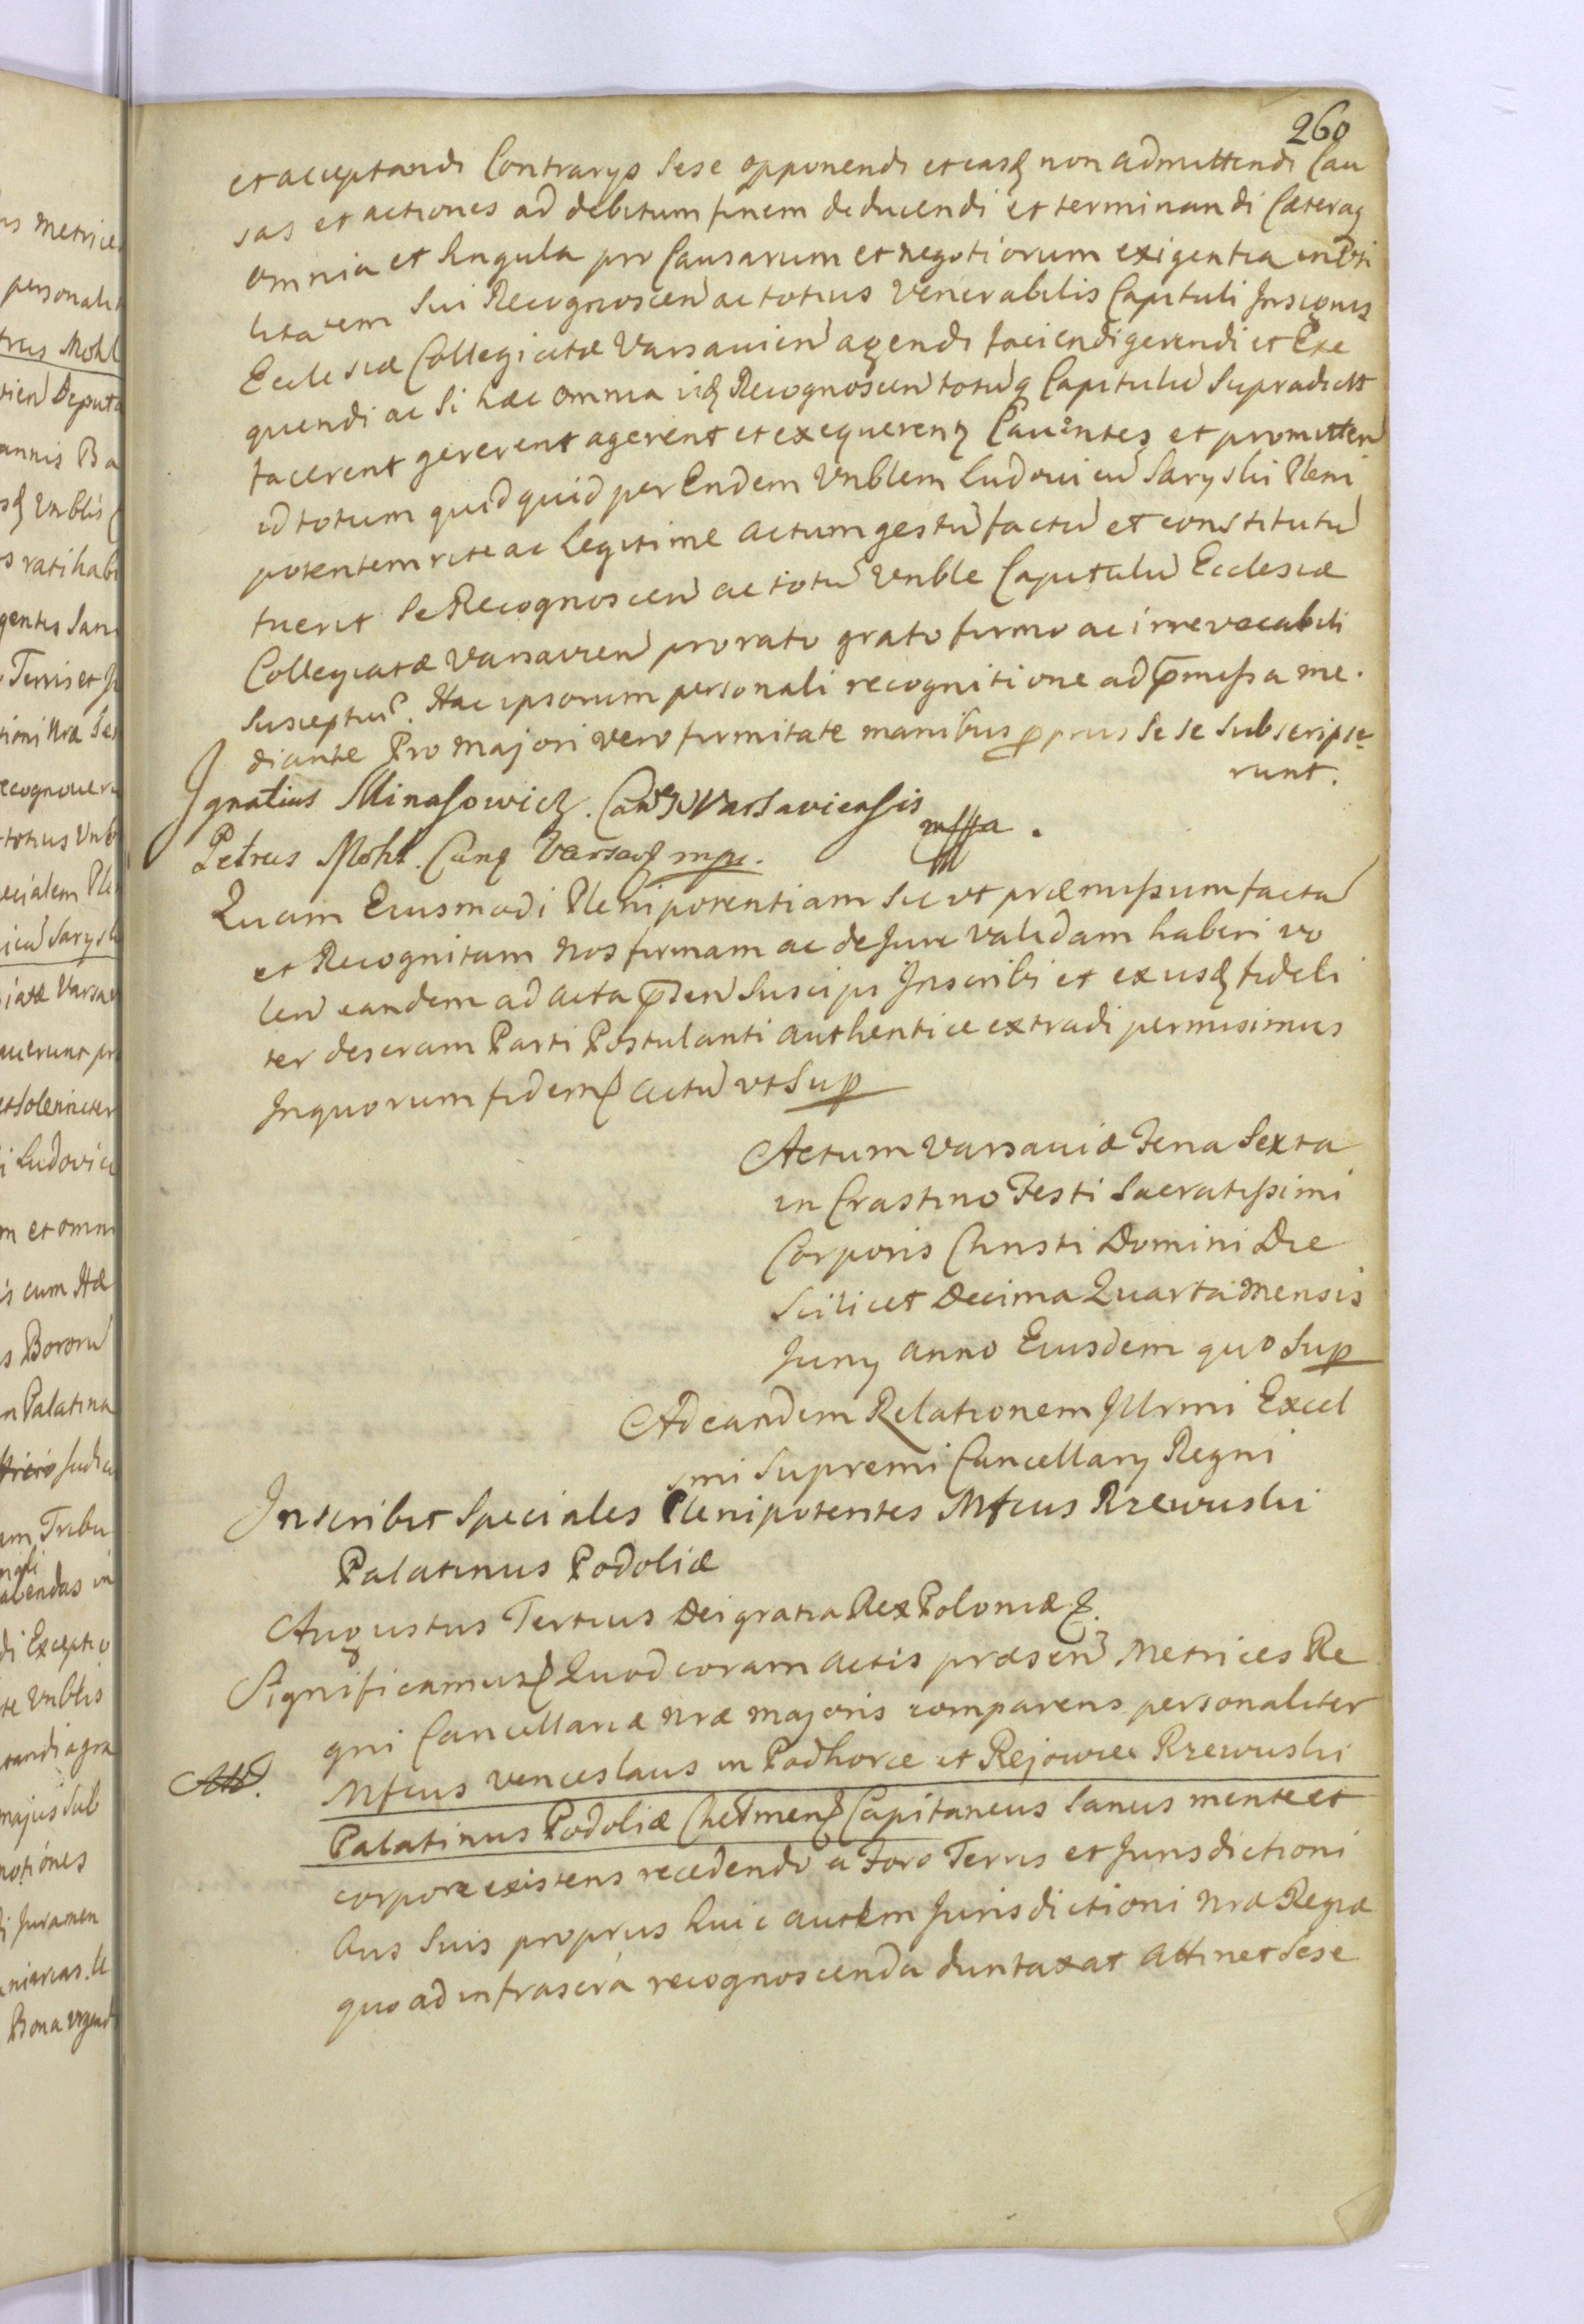 260
et acceptandi Contrarys Sese opponendi et easq non admittendi Cau
sas et actiones ad debitum finem deducendi et terminandi Cæteraq
omnia et Singula pro Causarum et negotiorum exigentia in Uti
litatem Sui Recognoscen ac totius Venerabilis Capituli Insignis
Ecclesiæ Collegiatæ Varsavien agendi faciendi gerendi et Exe
quendi ac Si hæc omnia iiq Recognoscen totuq Capitulu Supradictt
facerent gererent agerent et exequerentz Caventes et promitten
id totum quidquid per Eundem Vnblem Ludovicu Saryski Pleni
potentem rite ac Legitime actum gestu factu et constitutu
fuerit Se Recognoscen ac totu Vnble Capitulu Ecclesiæ
Collegiatæ Varsavien pro rato grato firmo ac irrevocabili
Susceptur. Hac ipsorum personali recognitione ad pmissa me.
diante Pro majori vero firmitate manibus pprus Se se Subscripse
runt.
Ignatius Minasowicz. Canq Varsaviensis mppa.
Petrus Mohl. Canq Varsavq mpp.
Quam Eiusmodi Plenipotentiam Sic ut præmissum facta
et Recognitam Nos firmam ac de Jure Validam haberi vo
len eandem ad acta pden Suscipi Inscribi et ex usq fideli
ter descram Parti Postulanti authentice extradi permisimus
In quorum fidem actu ut Sup
Actum Varsaviæ Feria Sexta
in Crastino Festi Sacratissimi
Corporis Christi Domini Die
Scilicet Decima Quarta Mensis
Juny anno Eiusdem quo Sup
Ad eandem Relationem Illrmi Excel
smi Supremi Cancellary Regni
Inscribit Speciales Plenipotentes Mfcus Rzewuski
Palatinus Podoliæ
Augustus Tertius Dei gratia Rex Poloniæ
Significamus Quod coram actis præsen Metrices Re
gni Cancellariæ Nræ majoris comparens personaliter
Mfcus Venceslaus in Podhorce et Rejowiec Rzewuski
Palatinus Podoliæ Chelmen Capitaneus Sanus mente et
corpore existens recedendo a Foro Terris et Jurisdictioni
bus Suis proprus huic autem Jurisdictioni Nræ Regiæ
quo ad infrascra recognoscenda duntaxat attinet Sese